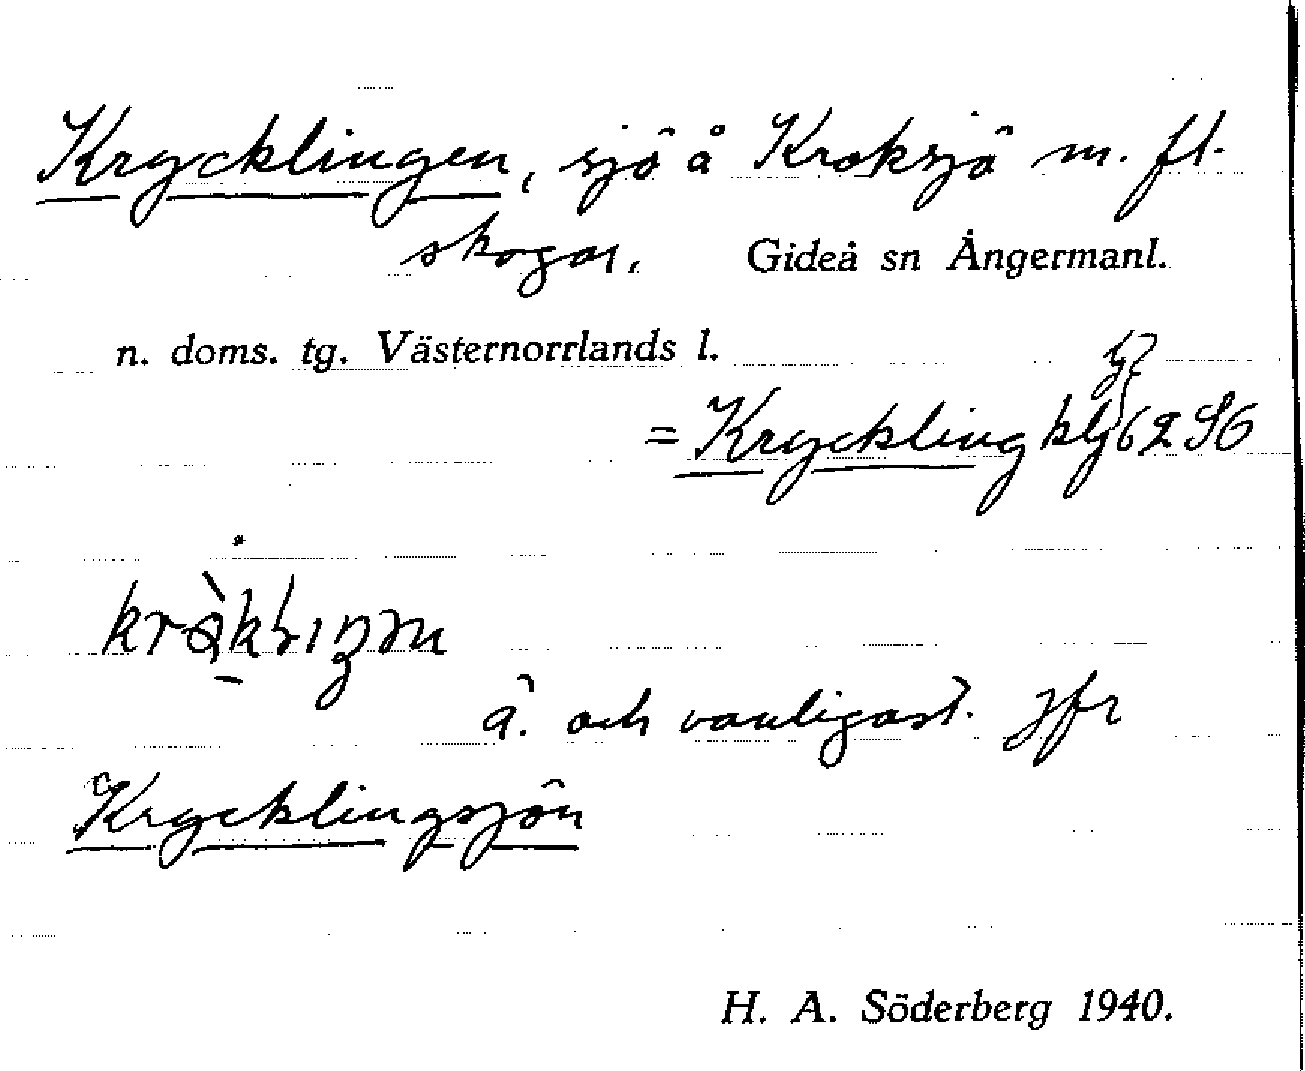 Krycklingen, sjö å Kroksjö m. fl.
skogar. Gideå sn Ångermanl.
n. doms. tg. Västernorrlands l.
= Kryckling
å. och vanligast. Jfr
Krycklingsjön
H. A. Söderberg 1940.